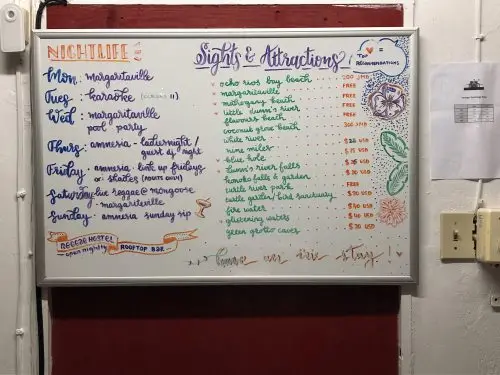 NIGHTLIFE
Mon: margaritaville
Tues - karaoke
Wed: margaritaville
pool party
Thurs: amnesia - ladies night /
guest dj night
Friday: amnesia: link up fridays
or: shades
Saturday: live reggae @ mongoose
margaritaville
Sunday: amnesia sunday sip
REGGAE HOSTEL
open nightly
ROOFTOP BAR
Sights & Attractions!
= TOP
RECOMMENDATIONS
ocho rios bay beach 200 JMD
margaritaville FREE
mahogany beach FREE
little dunn's river FREE
flavours beach FREE
coconut grove beach 300 JMD
white river
nine miles
blue hole
dunn's river falls
konoko falls & garden $20 USD
turtle river park FREE
turtle garden/bird sanctuary $20 USD
fire water
glistening waters
green grotto caves $20 USD
have an irie stay!